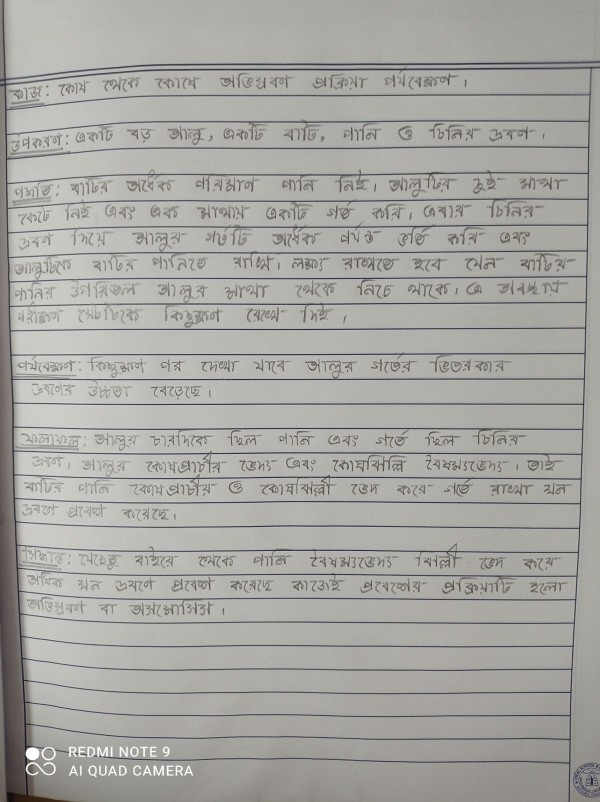 কাজ: কোষ থেকে কোষে অভিস্রবণ প্রক্রিয়া পর্যবেক্ষণ।
উপকরণ: একটি বড় আলু, একটি বাটি, পানি ও চিনির দ্রবণ।
পদ্ধতি: বাটির অর্ধেক পরিমাণ পানি নিই। আলুটির দুই মাথা
কেটে নিই এবং এক মাথায় একটি গর্ত করি। এবার চিনির
দ্রবণ দিয়ে আলুর গর্তটি অর্ধেক পর্যন্ত ভর্তি করি এবং
আলুটিকে বাটির পানিতে রাখি। লক্ষ্য রাখতে হবে যেন বাটির
পানির উপরিতল আলুর মাথা থেকে নিচে থাকে। এ অবস্থায়
পরীক্ষণ সেটটিকে কিছুক্ষণ রেখে দিই।
পর্যবেক্ষণ: কিছুক্ষণ পর দেখা যাবে আলুর গর্তের ভিতরকার
দ্রবণের উচ্চতা বেড়েছে।
ফলাফল: আলুর চারদিকে ছিল পানি এবং গর্তে ছিল চিনির
দ্রবণ। আলুর কোষপ্রাচীর ভেদ্য এবং কোষঝিল্লি বৈষম্যভেদ্য। তাই
বাটির পানি কোষপ্রাচীর ও কোষঝিল্লী ভেদ করে গর্তে রাখা ঘন
দ্রবণে প্রবেশ করেছে।
সিদ্ধান্ত: যেহেতু বাইরে থেকে পানি বৈষম্যভেদ্য ঝিল্লী ভেদ করে
অধিক ঘন দ্রবণে প্রবেশ করেছে কাজেই প্রবেশের প্রক্রিয়াটি হলো
অভিস্রবণ বা অসমোসিস।
REDMI NOTE 9
AI QUAD CAMERA